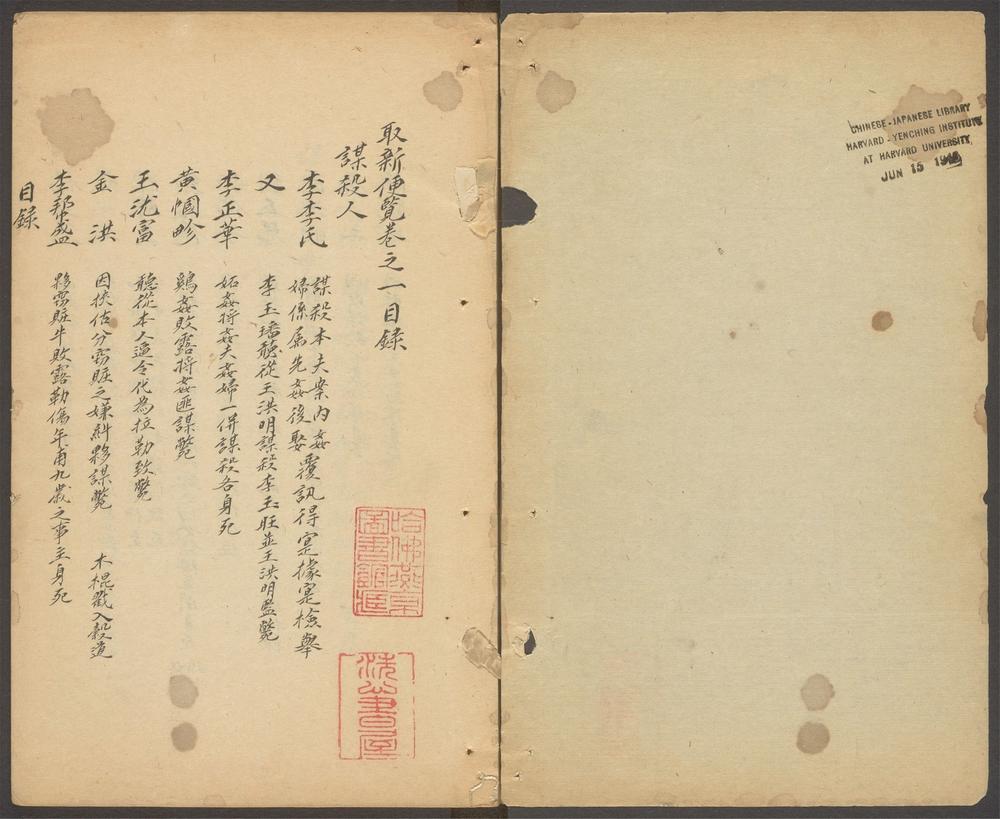 取新便覽卷之一目錄
謀殺人
李李氏 謀殺本夫案內姦婦係屬先姦後娶覆訊得寔據寔檢舉
又 李玉璠聽從王洪明謀殺李玉旺並王洪明監斃
李正華 妬姦將姦夫姦婦一併謀殺各身死
黃㤥畛 鷄姦敗露將姦匪謀斃
王沈富 聽從本人逼令代為拉勒致斃
金洪 因挾佔分竊賍之嫌糾夥謀斃 木棍戳入穀道
李帮盛 夥竊賍牛敗露勒傷年甫九歲之事主身死
目錄
哈佛燕京圖書館匧
書屋
CHINESE-JAPANESE LIBRARY
HARVARD-YENCHING INSTITUTE
AT HARVARD UNIVERSITY
JUN 15